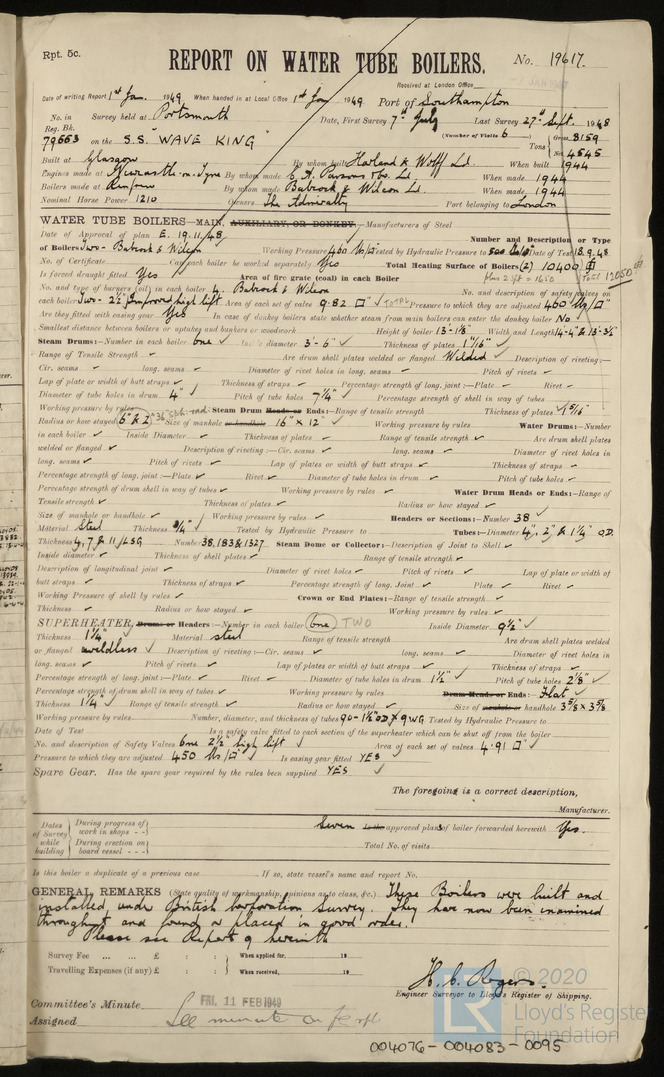 Rpt. 5c.
REPORT ON WATER TUBE BOILERS.
No. 19617.
Received at London Office
Date of writing Report 1st Jan. 1949 When handed in at Local Office 1st Jan 1949 Port of Southampton
No. in Reg. Bk. Survey held at Portsmouth Date, First Survey 7th July Last Survey 27th Sept. 1948
(Number of Visits 6)
79663 on the S.S. "WAVE KING" Tons Gross 8159 Net 4545
Built at Glasgow By whom built Harland & Wolff Ld. When built 1944
Engines made at Newcastle-on-Tyne By whom made C. A. Parsons & Co. Ld. When made 1944
Boilers made at Renfrew By whom made Babcock & Wilcox Ld. When made 1944
Nominal Horse Power 1210 Owners The Admiralty Port belonging to London
WATER TUBE BOILERS—MAIN, AUXILIARY, OR DONKEY.—Manufacturers of Steel
Date of Approval of plan E. 19.11.48. Number and Description or Type
of Boilers Two - Babcock & Wilcox Working Pressure 460 lbs/□" Tested by Hydraulic Pressure to Date of Test 18.9.48
No. of Certificate Can each boiler be worked separately Yes Total Heating Surface of Boilers (2) 10400
Is forced draught fitted Yes Area of fire grate (coal) in each Boiler
Total 12050
No. and type of burners (oil) in each boiler 4. Babcock & Wilcox No. and description of safety valves on
each boiler Two - 2½" Improved high lift Area of each set of valves 9.82 □" TOTAL Pressure to which they are adjusted 460 lbs/□"
Are they fitted with easing gear Yes In case of donkey boilers state whether steam from main boilers can enter the donkey boiler No
Smallest distance between boilers or uptakes and bunkers or woodwork Height of boiler 13'-1⅛" Width and Length 14'-4" & 13'-3½"
Steam Drums:—Number in each boiler One Inside diameter 3'-6" Thickness of plates 1 1/16"
Range of Tensile Strength Are drum shell plates welded or flanged Welded Description of riveting:—
Cir. seams long. seams Diameter of rivet holes in long. seams Pitch of rivets
Lap of plate or width of butt straps Thickness of straps Percentage strength of long. joint:—Plate Rivet
Diameter of tube holes in drum 4" Pitch of tube holes 7¼" Percentage strength of shell in way of tubes
Working pressure by rules Steam Drum Heads or Ends:—Range of tensile strength Thickness of plates 1 5/16"
Radius or how stayed Size of manhole or handhole 16" x 12" Working pressure by rules Water Drums:—Number
in each boiler Inside Diameter Thickness of plates Range of tensile strength Are drum shell plates
welded or flanged Description of riveting:—Cir. seams long. seams Diameter of rivet holes in
long. seams Pitch of rivets Lap of plates or width of butt straps Thickness of straps
Percentage strength of long. joint:—Plate Rivet Diameter of tube holes in drum Pitch of tube holes
Percentage strength of drum shell in way of tubes Working pressure by rules Water Drum Heads or Ends:—Range of
Tensile strength Thickness of plates Radius or how stayed
Size of manhole or handhole Working pressure by rules Headers or Sections:—Number 38
Material Steel Thickness ¾" Tested by Hydraulic Pressure to Tubes:—Diameter 4", 2" & 1¼" OD.
Thickness 4, 7 & 11 LSG Number 38, 183 & 1327 Steam Dome or Collector:—Description of Joint to Shell
Inside diameter Thickness of shell plates Range of tensile strength
Description of longitudinal joint Diameter of rivet holes Pitch of rivets Lap of plate or width of
butt straps Thickness of straps Percentage strength of long. Joint Plate Rivet
Working Pressure of shell by rules Crown or End Plates:—Range of tensile strength
Thickness Radius or how stayed Working pressure by rules
SUPERHEATER, Drums or Headers:—Number in each boiler One TWO Inside Diameter 9½"
Thickness 1¼" Material steel Range of tensile strength Are drum shell plates welded
or flanged weldless Description of riveting:—Cir. seams long. seams Diameter of rivet holes in
long. seams Pitch of rivets Lap of plates or width of butt straps Thickness of straps
Percentage strength of long. joint:—Plate Rivet Diameter of tube holes in drum 1½" Pitch of tube holes 2⅛"
Percentage strength of drum shell in way of tubes Working pressure by rules Drum Heads or Ends:—Flat
Thickness 1¼" Range of tensile strength Radius or how stayed Size of manhole or handhole 3⅝ x 3⅝
Working pressure by rules Number, diameter, and thickness of tubes 90 - 1½" OD x 9WG Tested by Hydraulic Pressure to
Date of Test Is a safety valve fitted to each section of the superheater which can be shut off from the boiler
No. and description of Safety Valves One 2½" high lift Area of each set of valves 4.91 □"
Pressure to which they are adjusted 450 lbs/□" Is easing gear fitted YES
Spare Gear. Has the spare gear required by the rules been supplied YES
The foregoing is a correct description,
Manufacturer.
Dates of Survey while building During progress of work in shops - - Seven Is the approved plans of boiler forwarded herewith Yes.
During erection on board vessel - - - Total No. of visits
Is this boiler a duplicate of a previous case If so, state vessel's name and report No.
GENERAL REMARKS (State quality of workmanship, opinions as to class, &c.) These Boilers were built and
installed under British Corporation Survey. They have now been examined
throughout and found or placed in good order.
Please see Report 9 herewith
Survey Fee ... ... £ : : When applied for, 19
Travelling Expenses (if any) £ : : When received, 19
H. C. Rogers.
Engineer Surveyor to Lloyd's Register of Shipping.
Committee's Minute FRI. 11 FEB 1949
Assigned See minute on
© 2020
Lloyd's Register
Foundation
004076-004083-0095